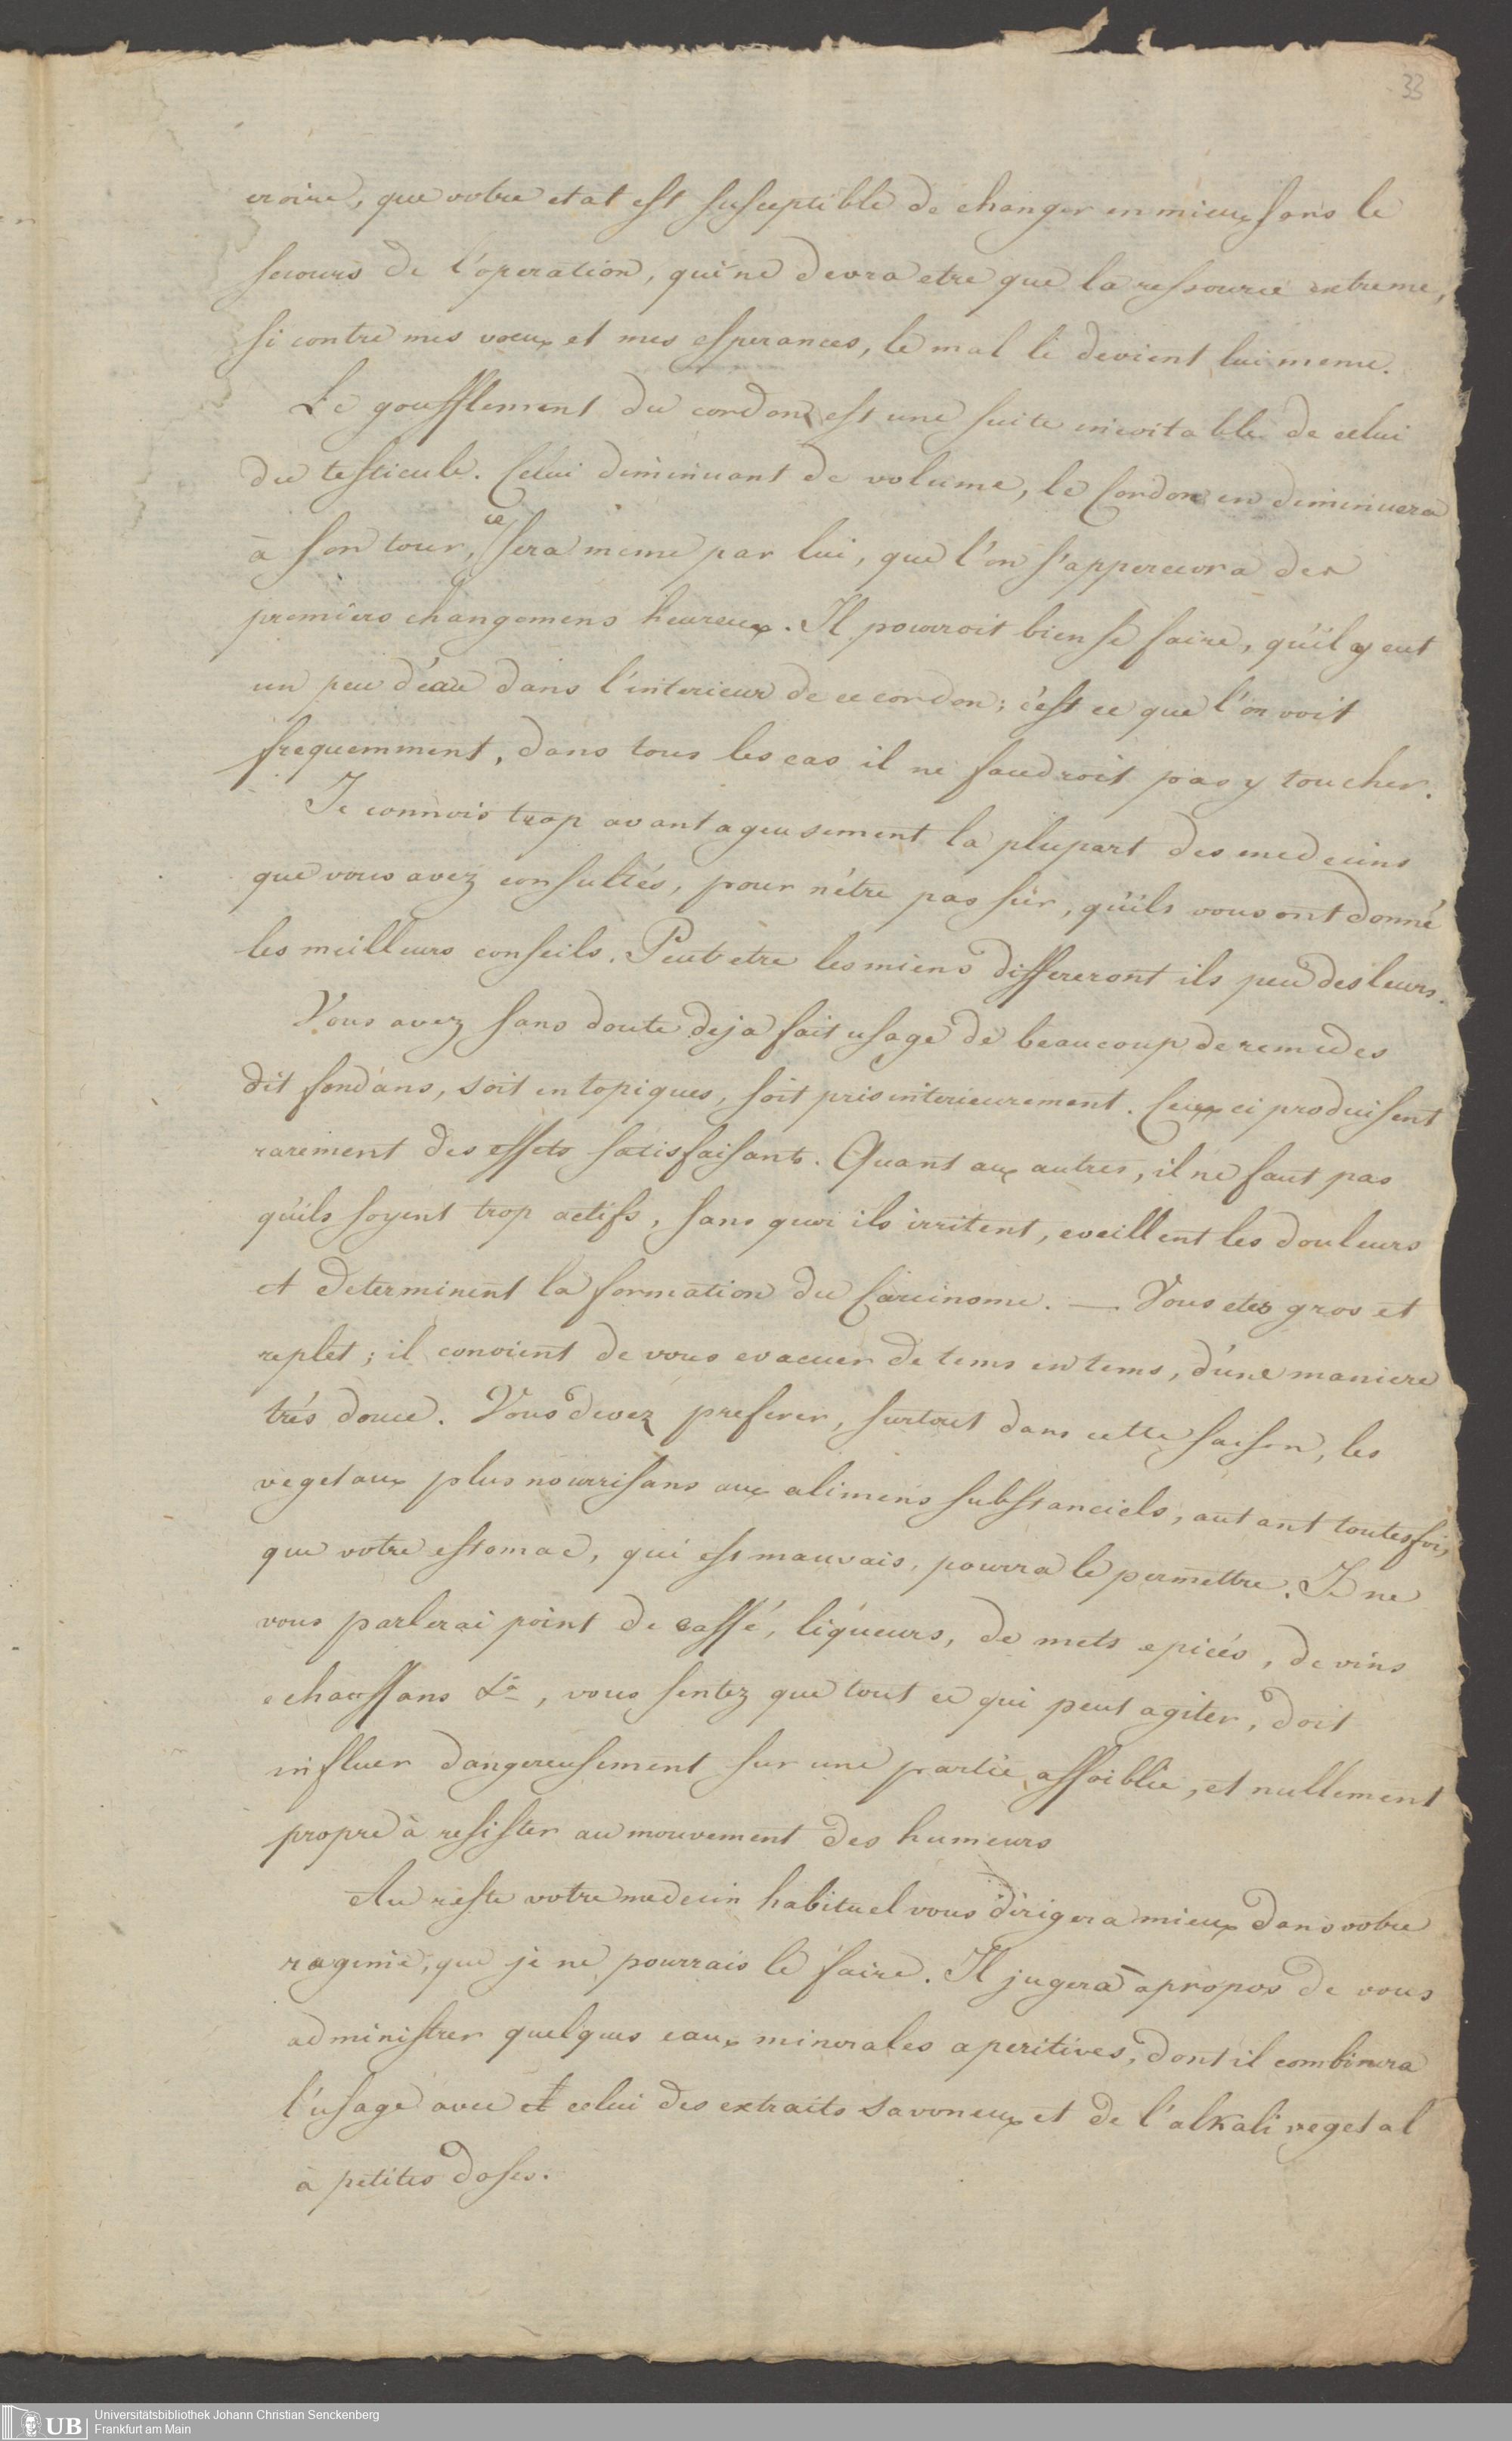 33
croire, que votre etat est susceptible de changer en mieux sans le
secours de l'operation, qui ne devra etre que la ressource extreme,
si contre mes voeux et mes esperances, le mal le devient lui meme.
Le goufflement du cordon est une suite inevitable de celui
du testicule. Celui diminuant de volume, le Cordon en diminuera
à son tour, ce sera meme par lui, que l'on s'appercevra des
premiers changemens heureux. Il pourroit bien se faire, qu'il y eut
un peu d'eau dans l'interieur de ce cordon; c'est ce que l'on voit
frequemment, dans tous les cas il ne faudroit pas y toucher.
Je connois trop avantageusement la plupart des medecins
que vous avez consultés, pour n'étre pas sûr, qu'ils vous ont donné
les meilleurs conseils. Peut etre les miens differeront ils peu des leurs.
Vous avez sans doute deja fait usage de beaucoup de remedes
dit fondans, soit en topiques, soit pris interieurement. Ceux ci produisent
rarement des effets satisfaisants. Quant aux autres, il ne faut pas
qu'ils soyent trop actifs, sans quoi ils irritent, eveillent les douleurs
et determinent la formation du Carcinome. — Vous etes gros et
replet; il convient de vous evacuer de tems en tems, d'une maniere
trés douce. Vous devez preferer, surtout dans cette saison, les
vegetaux plus nourrisans aux alimens substanciels, autant toutesfois
que votre estomac, qui est mauvais, pourra le permettre. Je ne
vous parlerai point de caffé, liqueurs, de mets epicés, de vins
echauffans &a, vous sentez que tout ce qui peut agiter, doit
influer dangereusement sur une partie affoiblie, et nullement
propre à resister au mouvement des humeurs
Au reste votre medecin habituel vous dirigera mieux dans votre
regime, que je ne pourrais le faire. Il jugera apropos de vous
administrer quelques eaux minerales aperitives, dont il combinera
l'usage avec et celui des extraits savoneux et de l'alkali vegetal
à petites doses.
UB Universitätsbibliothek Johann Christian Senckenberg
Frankfurt am Main